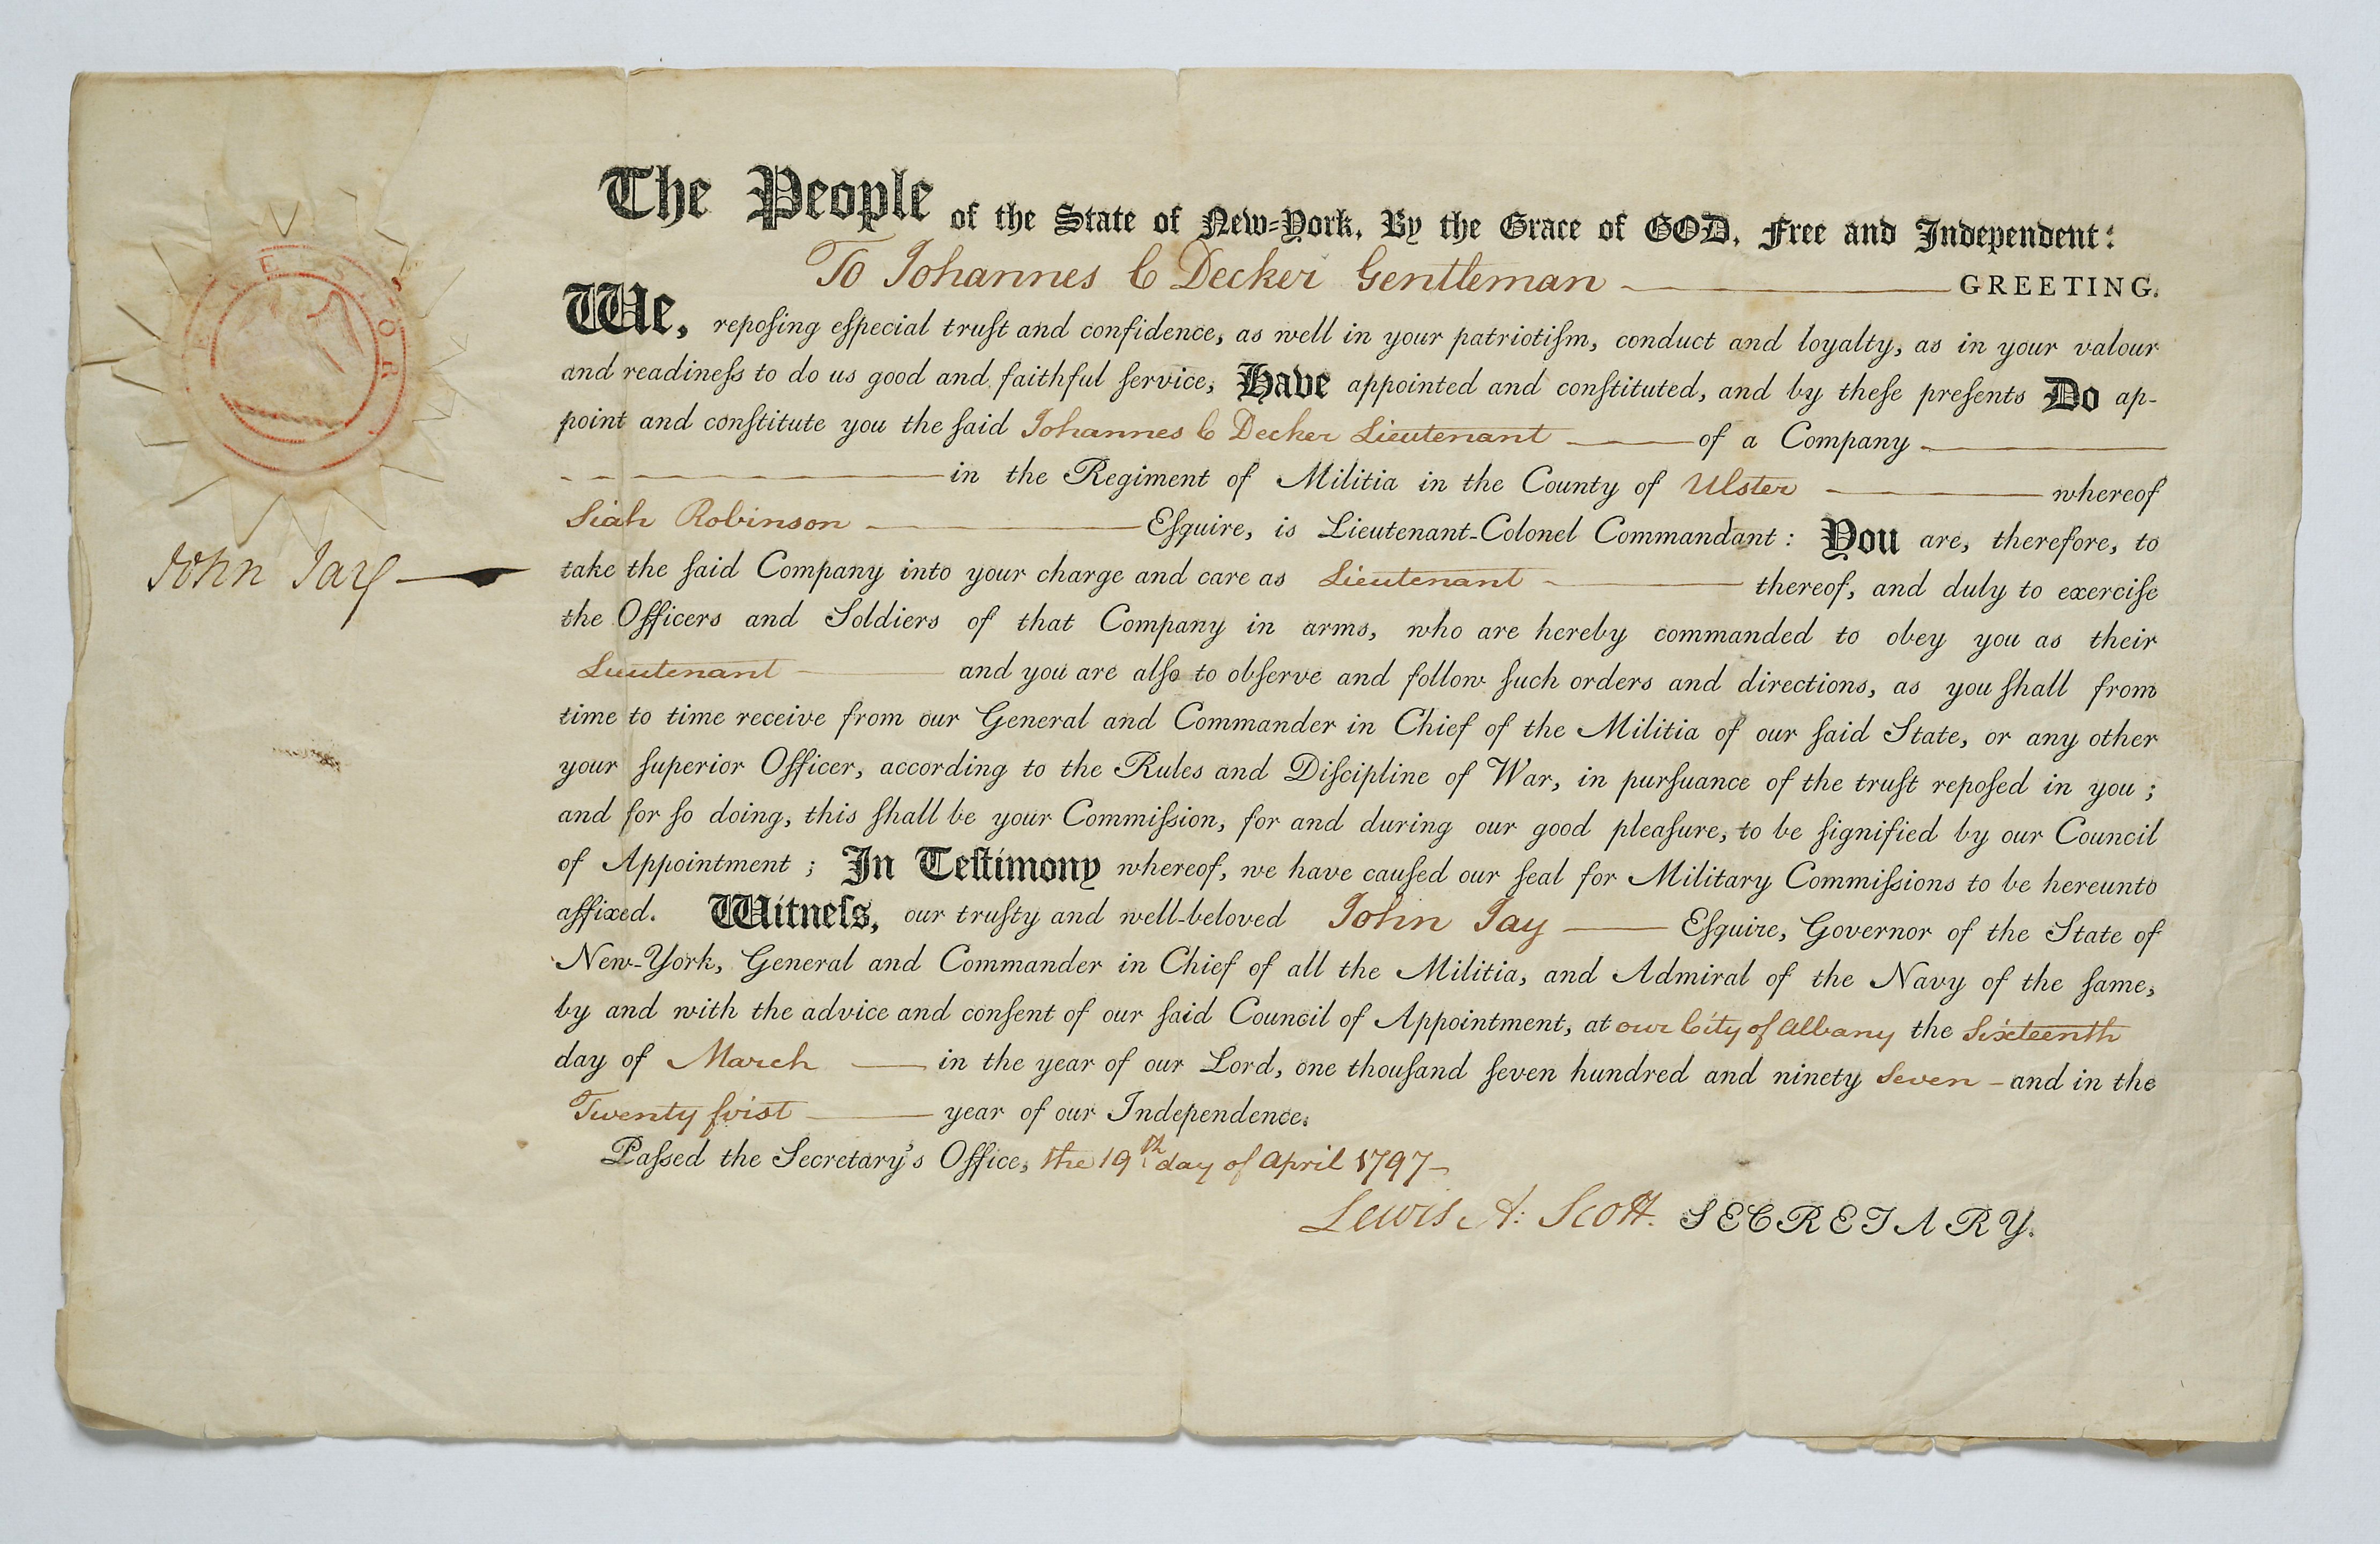 EXCELSIOR
John Jay
The People of the State of New-York, By the Grace of GOD, Free and Independent:
To Johannes C Decker Gentleman GREETING.
We, repoſing eſpecial truſt and confidence, as well in your patriotiſm, conduct and loyalty, as in your valour
and readineſs to do us good and faithful ſervice, Have appointed and conſtituted, and by theſe preſents Do ap-
point and conſtitute you the ſaid Johannes C Decker Lieutenant of a Company
in the Regiment of Militia in the County of Ulster whereof
Siah Robinson Eſquire, is Lieutenant-Colonel Commandant: You are, therefore, to
take the ſaid Company into your charge and care as Lieutenant thereof, and duly to exerciſe
the Officers and Soldiers of that Company in arms, who are hereby commanded to obey you as their
Lieutenant and you are alſo to obſerve and follow ſuch orders and directions, as you ſhall from
time to time receive from our General and Commander in Chief of the Militia of our ſaid State, or any other
your ſuperior Officer, according to the Rules and Diſcipline of War, in purſuance of the truſt repoſed in you;
and for ſo doing, this ſhall be your Commiſsion, for and during our good pleaſure, to be ſignified by our Council
of Appointment; In Teſtimony whereof, we have cauſed our ſeal for Military Commiſsions to be hereunto
affixed. Witneſs, our truſty and well-beloved John Jay Eſquire, Governor of the State of
New-York, General and Commander in Chief of all the Militia, and Admiral of the Navy of the ſame,
by and with the advice and conſent of our ſaid Council of Appointment, at our City of Albany the Sixteenth
day of March in the year of our Lord, one thouſand ſeven hundred and ninety Seven - and in the
Twenty first year of our Independence.
Paſsed the Secretary's Office, the 19th day of April 1797
Lewis A: Scott. SECRETARY.